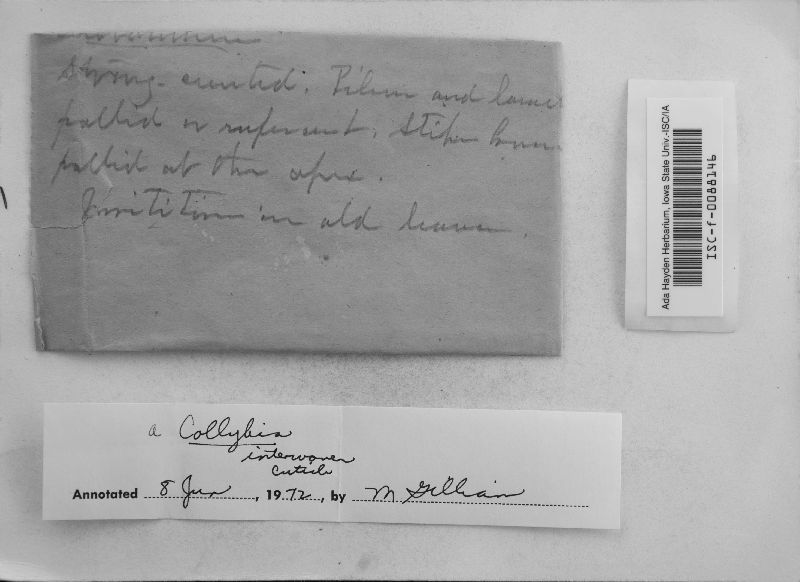 Strong-scented. Pileus and lamel
pallid or rufescent. Stipe brown
pallid at the apex.
in old leaves.
Ada Hayden Herbarium, Iowa State Univ.-ISC/IA
ISC-f-0088146
a Collybia
interwoven
cuticle
Annotated 8 Jun, 1972, by M Gillian